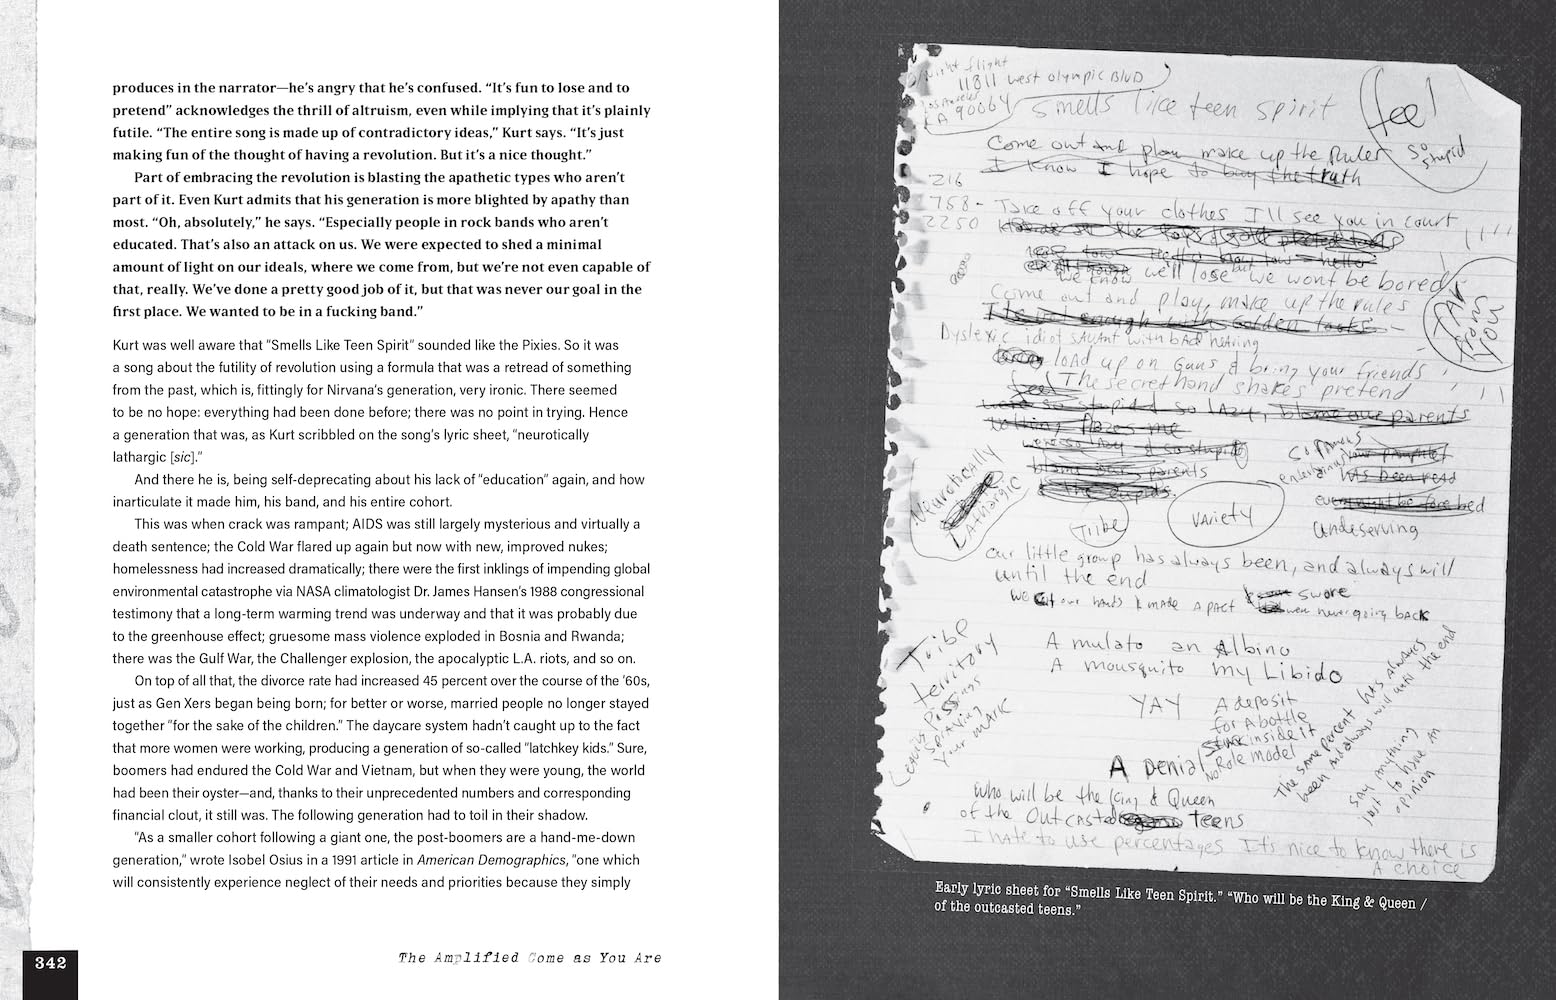 produces in the narrator—he's angry that he's confused. “It's fun to lose and to
pretend” acknowledges the thrill of altruism, even while implying that it's plainly
futile. “The entire song is made up of contradictory ideas,” Kurt says. “It's just
making fun of the thought of having a revolution. But it's a nice thought.”
Part of embracing the revolution is blasting the apathetic types who aren't
part of it. Even Kurt admits that his generation is more blighted by apathy than
most. “Oh, absolutely,” he says. “Especially people in rock bands who aren't
educated. That's also an attack on us. We were expected to shed a minimal
amount of light on our ideals, where we come from, but we're not even capable of
that, really. We've done a pretty good job of it, but that was never our goal in the
first place. We wanted to be in a fucking band.”
Kurt was well aware that “Smells Like Teen Spirit” sounded like the Pixies. So it was
a song about the futility of revolution using a formula that was a retread of something
from the past, which is, fittingly for Nirvana's generation, very ironic. There seemed
to be no hope: everything had been done before; there was no point in trying. Hence
a generation that was, as Kurt scribbled on the song's lyric sheet, “neurotically
lathargic [sic].”
And there he is, being self-deprecating about his lack of “education” again, and how
inarticulate it made him, his band, and his entire cohort.
This was when crack was rampant; AIDS was still largely mysterious and virtually a
death sentence; the Cold War flared up again but now with new, improved nukes;
homelessness had increased dramatically; there were the first inklings of impending global
environmental catastrophe via NASA climatologist Dr. James Hansen's 1988 congressional
testimony that a long-term warming trend was underway and that it was probably due
to the greenhouse effect; gruesome mass violence exploded in Bosnia and Rwanda;
there was the Gulf War, the Challenger explosion, the apocalyptic L.A. riots, and so on.
On top of all that, the divorce rate had increased 45 percent over the course of the '60s,
just as Gen Xers began being born; for better or worse, married people no longer stayed
together “for the sake of the children.” The daycare system hadn't caught up to the fact
that more women were working, producing a generation of so-called “latchkey kids.” Sure,
boomers had endured the Cold War and Vietnam, but when they were young, the world
had been their oyster—and, thanks to their unprecedented numbers and corresponding
financial clout, it still was. The following generation had to toil in their shadow.
“As a smaller cohort following a giant one, the post-boomers are a hand-me-down
generation,” wrote Isobel Osius in a 1991 article in American Demographics, “one which
will consistently experience neglect of their needs and priorities because they simply
342
The Amplified Come as You Are
Night flight
11811 west olympic BlvD
Los Angeles
CA 90064
Smells like teen spirit
feel
so stupid
Come out and play make up the Rules
I Know I hope to buy the truth
216
758 - Take off your clothes I'll see you in court
2250
we'll lose but we wont be bored
we know
Come out and play, make up the rules
FAR from YOU
I'te not enough with Golden tasks
Dyslexic idiot savant with bad hearing
loAd up on Guns & bring your friends
The secret hand shakes pretend
were so stupid so lAzy, blame our parents
nothing fazes me
were so lAzy & so stupid
blame our parents
entertaining
has been read
Undeserving
Neurotically
LAthargic
Tribe
VArieTy
our little group has always been, and always will
until the end
we cut our hands & made a pact swore
we never going back
Tribe
territory
Leaving Pissings
Spraying
your mARK
A mulato an Albino
A mousquito my Libido
YAY
A deposit
for A bottle
stuck inside it
No Role model
A Denial
The same percent has always
been And always will until the end
say anything
Just to have an
opinion
Who will be the King & Queen
of the Outcasted Teens
I hate to use percentages It's nice to know there is
A choice
Early lyric sheet for “Smells Like Teen Spirit.” “Who will be the King & Queen /
of the outcasted teens.”